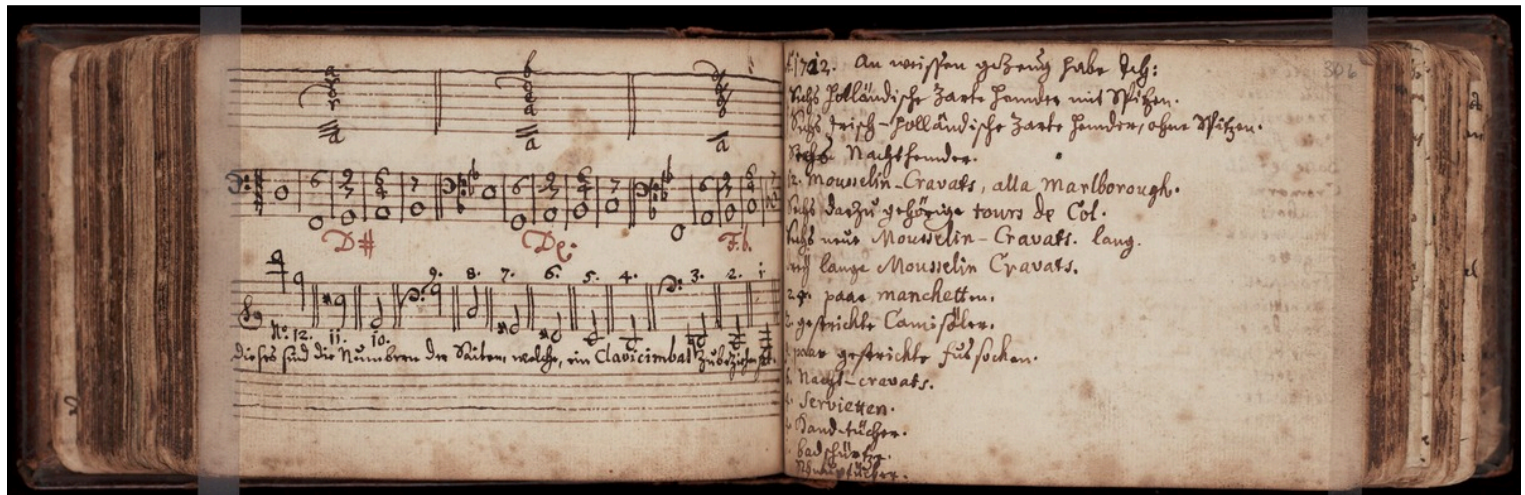 D#
De.
F.b.
9. 8. 7. 6. 5. 4. 3. 2. 1
No. 12. 11. 10.
dieses sind die Numbern der Saiten, welche, ein Clavicimbal zubeziehen
306
1712. An weissen gezeug habe Ich:
Sechs Holländische Zarte Hemder mit Spitzen.
Sechs Frisch-Holländische Zarte Hemder, ohne Spitzen.
Sechs Nachthemder.
12. Mousselin-Cravats, alla Marlborough.
Sechs darzu gehörige tours de Col.
Sechs neue Mousselin-Cravats. lang.
lange Mousselin Cravats.
paar manchetten.
gestrickte Camisöler.
paar gestrickte fussocken.
Nacht-cravats.
Servietten.
Hand-tücher.
badschürtze.
Schnupftücher.